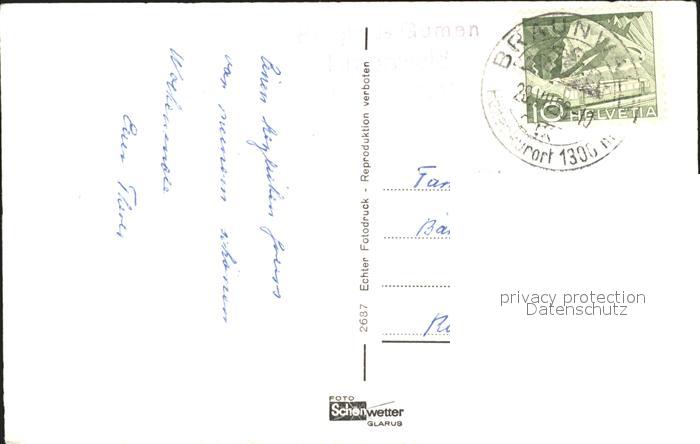 Einen herzlichen Gruss
von meinem schönen
Wochenende
Euer
2687 Echter Fotodruck - Reproduktion verboten
Gumen
BRAUNW
1300 m
10 HELVETIA
Fam
Bä
privacy protection
Datenschutz
FOTO
Schönwetter
GLARUS